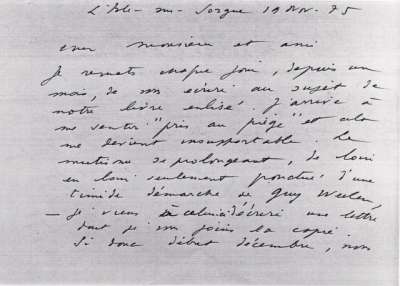 L'Isle-sur-Sorgue 19 Nov. 75
cher monsieur et ami
Je remets chaque jour, depuis un
mois, de vous écrire au sujet de
notre livre enlisé. J'arrive à
me sentir "pris au piège" et cela
me devient insupportable. Le
mutisme se prolongeant, de loin
en loin seulement ponctué d'une
timide démarche de Guy Weelen,
— je viens d'écrire une lettre
dont je vous joins la copie
Si donc début décembre, nous